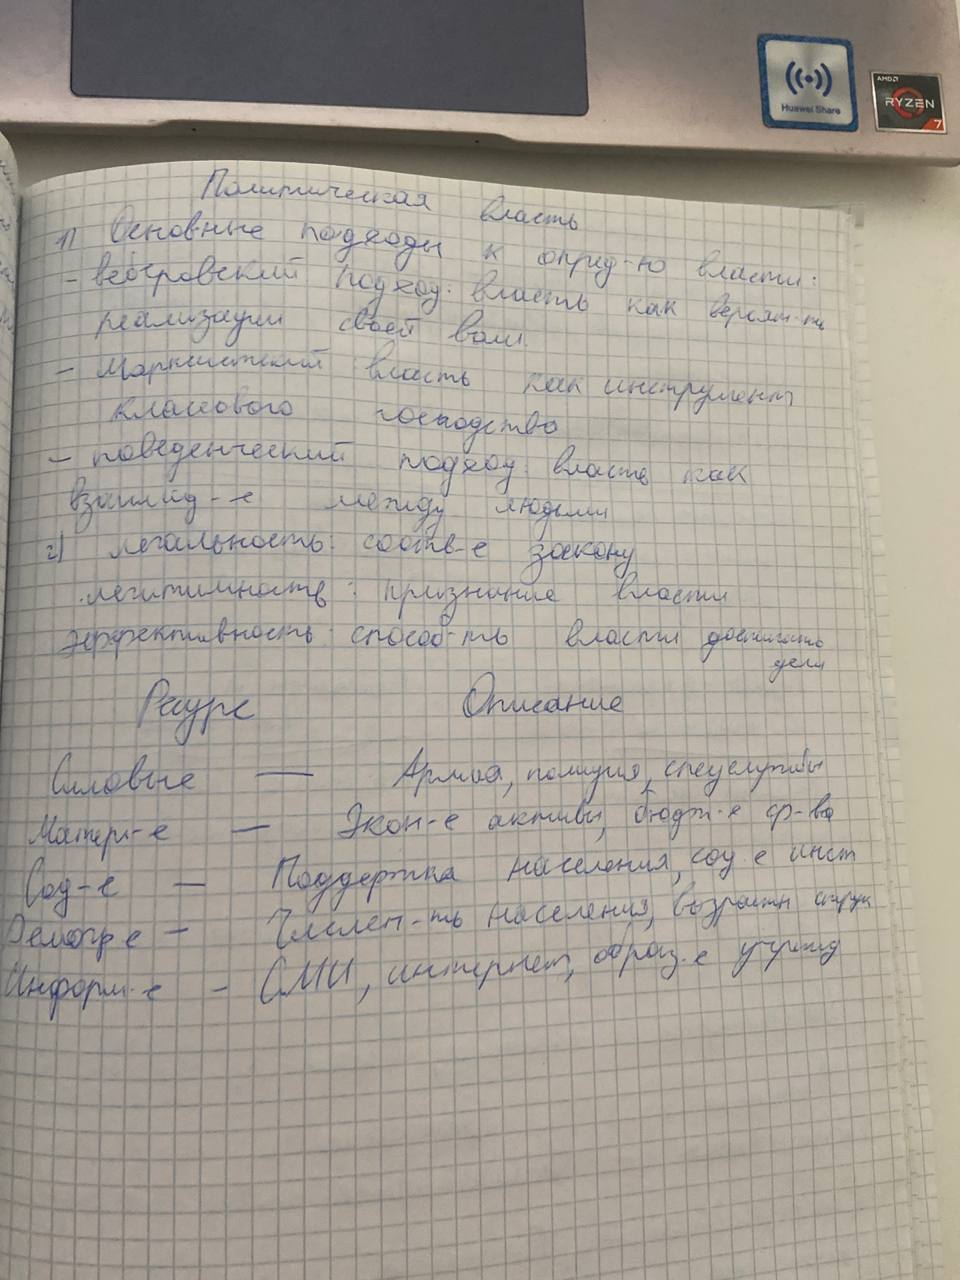 Huawei Share
AMD
RYZEN
7
Политическая власть
1) Основные подходы к опред-ю власти:
- веберовский подход: власть как вероят-ть
реализации своей воли.
- Марксистский власть как инструмент
классового господства
- поведенческий подход: власть как
взаимод-е между людьми
2) легальность: соотв-е закону
легитимность: признание власти
эффективность: способ-ть власти достигать
цели
Ресурс Описание
Силовые — Армия, полиция, спецслужбы
Матери-е — Экон-е активы, бюдж-е ср-ва
Соц-е — Поддержка населения, соц-е инст
Демогр-е - Числен-ть населения, возрастн структ
Информ-е - СМИ, интернет, образ-е учрежд